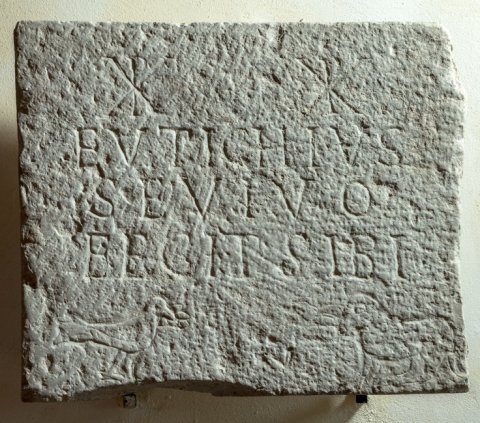 ☧ ☧
EVTICHIVS
SE VIVO
FECIT SIBI